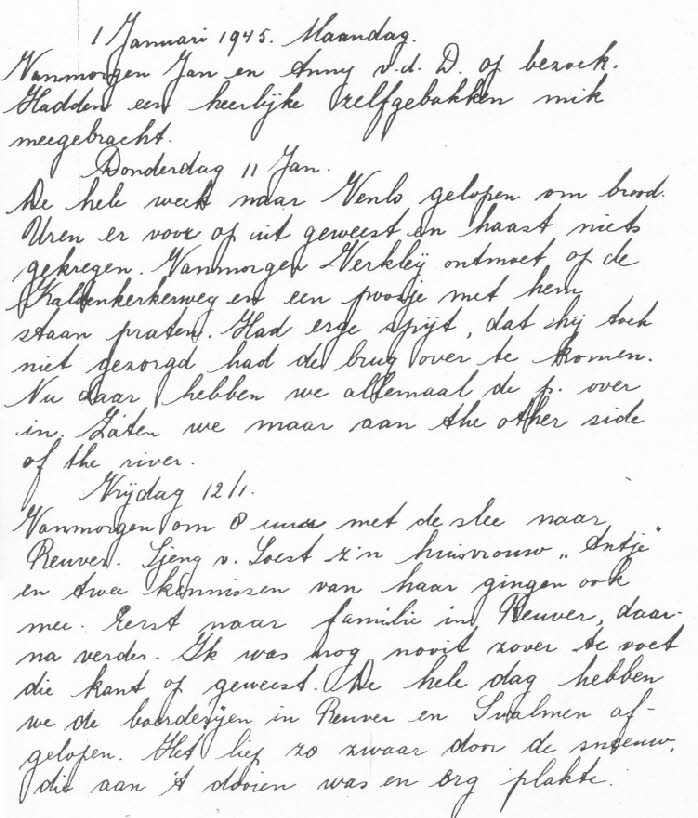 1 Januari 1945. Maandag.
Vanmorgen Jan en Anny v.d. D. op bezoek.
Hadden een heerlijke zelfgebakken mik
meegebracht.
Donderdag 11 Jan.
De hele week naar Venlo gelopen om brood.
Uren er voor op uit geweest en haast niets
gekregen. Vanmorgen Verkleij ontmoet op de
Kaldenkerkerweg en een poosje met hem
staan praten. Had erge spijt, dat hij toch
niet gezorgd had de brug over te komen.
Nu daar hebben we allemaal de p. over
in. Zaten we maar aan the other side
of the river.
Vrijdag 12/1.
Vanmorgen om 8 uur met de slee naar
Reuver. Sjeng v. Soest z'n huisvrouw „Antje"
en twee kennissen van haar gingen ook
mee. Eerst naar familie in Reuver, daar-
na verder. Ik was nog nooit zover te voet
die kant op geweest. De hele dag hebben
we de boerderijen in Reuver en Swalmen af-
gelopen. Het liep zo zwaar door de sneeuw,
die aan 't dooien was en erg plakte.